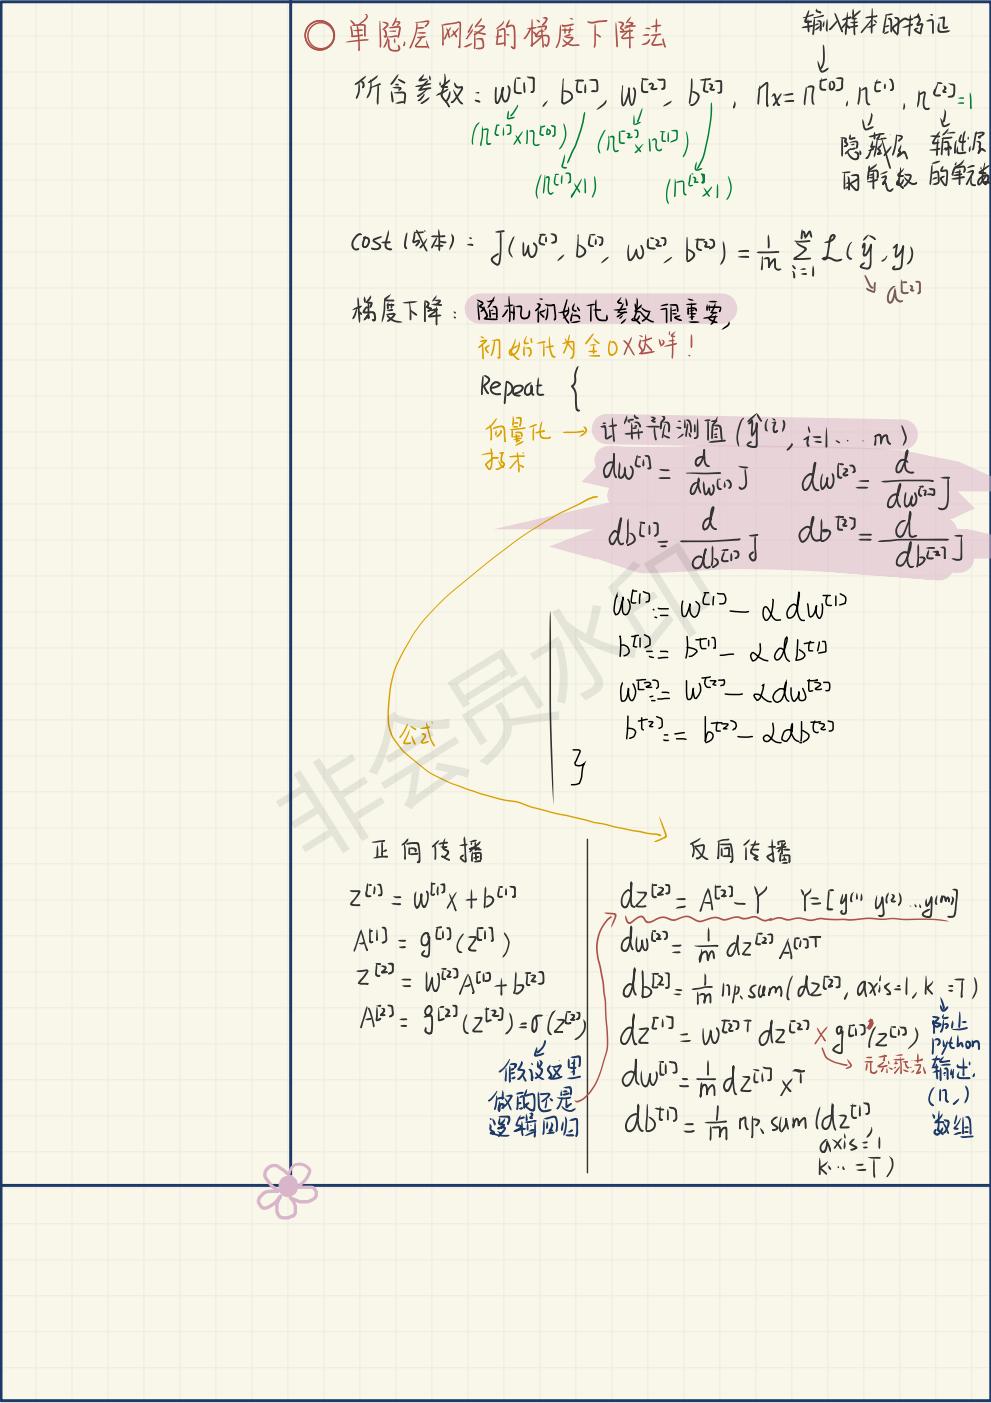 单隐层网络的梯度下降法
输入样本的特征
所含参数: w^[1], b^[1], w^[2], b^[2], n_x = n^[0], n^[1], n^[2]=1
(n^[1]×n^[0]) (n^[2]×n^[1])
(n^[1]×1) (n^[2]×1)
隐藏层的单元数
输出层的单元数
cost(成本): J(w^[1], b^[1], w^[2], b^[2]) = 1/m Σ_{i=1}^{m} L(ŷ, y)
a^[2]
梯度下降: 随机初始化参数很重要,
初始化为全0 X 达咩!
Repeat {
向量化技术 → 计算预测值 (ŷ^(i), i=1...m)
dw^[1] = d/dw^[1] J dw^[2] = d/dw^[2] J
db^[1] = d/db^[1] J db^[2] = d/db^[2] J
w^[1] := w^[1] - αdw^[1]
b^[1] := b^[1] - αdb^[1]
w^[2] := w^[2] - αdw^[2]
b^[2] := b^[2] - αdb^[2]
}
公式
非会员水印
正向传播
z^[1] = w^[1]x + b^[1]
A^[1] = g^[1](z^[1])
z^[2] = w^[2]A^[1] + b^[2]
A^[2] = g^[2](z^[2]) = σ(z^[2])
假设这里
做的还是
逻辑回归
反向传播
dz^[2] = A^[2] - Y Y = [y^(1) y^(2) ... y^(m)]
dw^[2] = 1/m dz^[2] A^[1]T
db^[2] = 1/m np.sum(dz^[2], axis=1, k =T)
dz^[1] = w^[2]T dz^[2] × g^[1]'(z^[1])
元素乘法
防止
python
输出
(n,)
数组
dw^[1] = 1/m dz^[1] x^T
db^[1] = 1/m np.sum(dz^[1],
axis=1
k... =T)